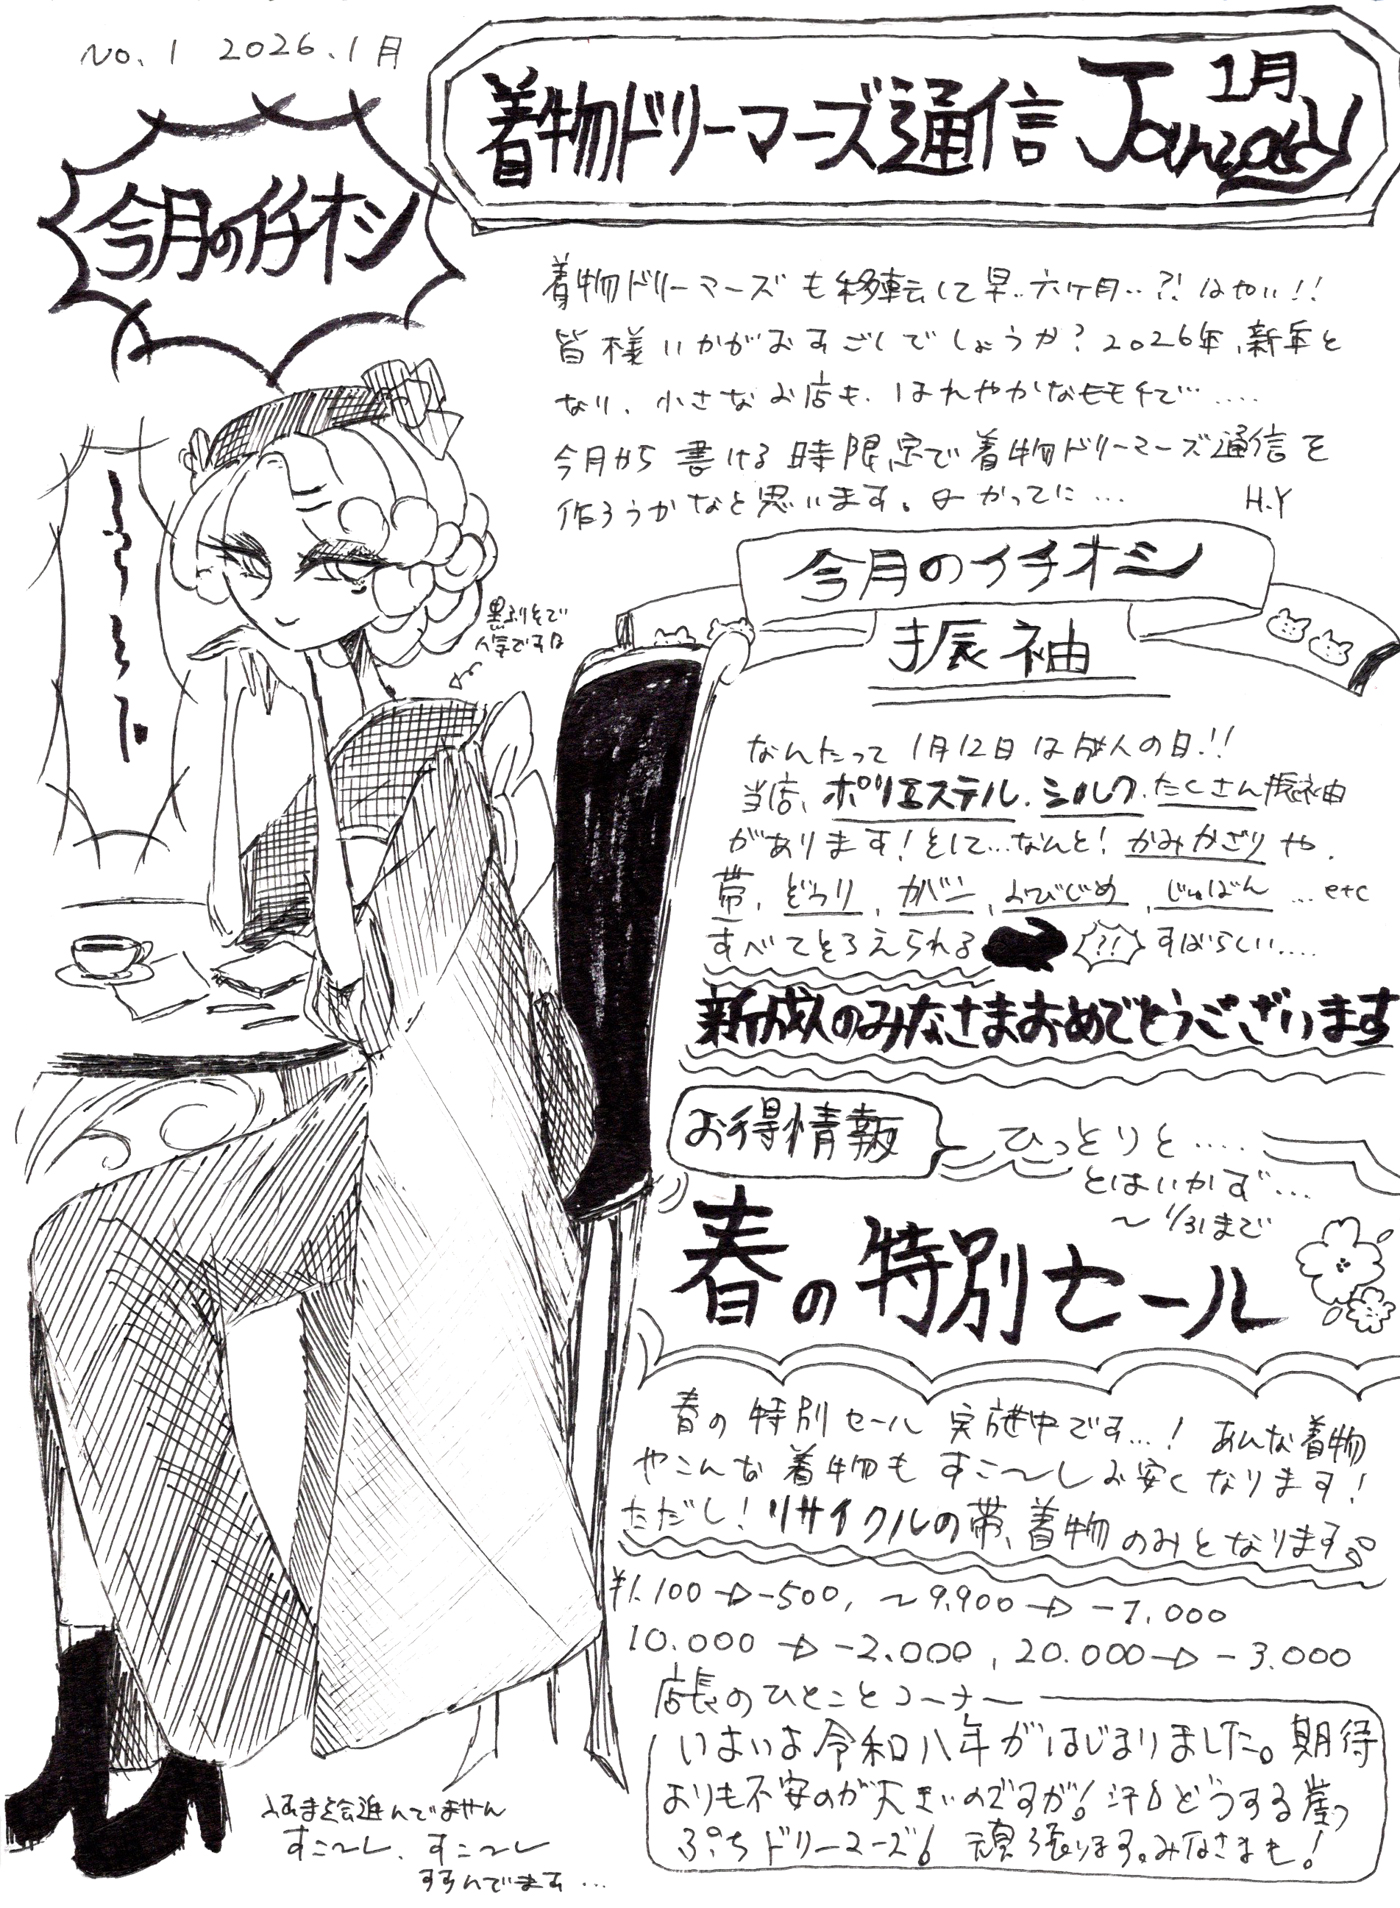 No.1 2026.1月
着物ドリーマーズ通信 1月 January
今月のイチオシ
着物ドリーマーズも移転して早..六ヶ月..?! はやい!!
皆様いかがおすごしでしょうか? 2026年、新年と
なり、小さなお店も、はれやかなモモチで……
今月から書ける時限定で着物ドリーマーズ通信を
作ろうかなと思います。 かってに… H.Y
黒ふりそで
今月のイチオシ
振袖
なんたって 1月12日は成人の日!!
当店、ポリエステル.シルク.たくさん振袖
があります!そして…なんと!かみかざりや、
帯、ぞうり、カバン、よびじめ、じゅばん…etc
すべてそろえられる ?! すばらしい……
新成人のみなさまおめでとうございます
お得情報 ひっとりと……
とはいかず…
~1/31まで
春の特別セール
春の特別セール実施中です…! あんな着物
やこんな着物もすこ〜しお安くなります!
ただし!リサイクルの帯、着物のみとなります。
¥1.100→-500, ~9.900→-1.000
10.000→-2.000, 20.000→-3.000
店長のひとことコーナー
いよいよ令和八年がはじまりました。期待
よりも不安のが大きいのですが! 汗 どうする崖っ
ぷちドリーマーズ! 頑張ります。みなさまも!
すこ〜し、すこ〜し
すすんでます…